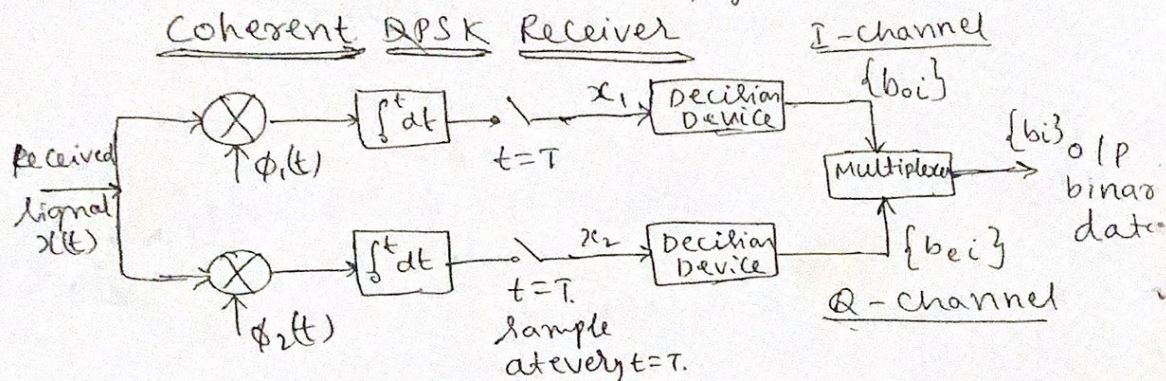 Coherent QPSK Receiver
I-channel
{b_oi}
Received
signal
x(t)
X
ϕ₁(t)
∫₀ᵗ dt
t=T
x₁
Decision
Device
Multiplexer
{bᵢ} o/p
binar
dat
X
ϕ₂(t)
∫₀ᵗ dt
t=T.
sample
at every t=T.
x₂
Decision
Device
{b_ei}
Q-channel